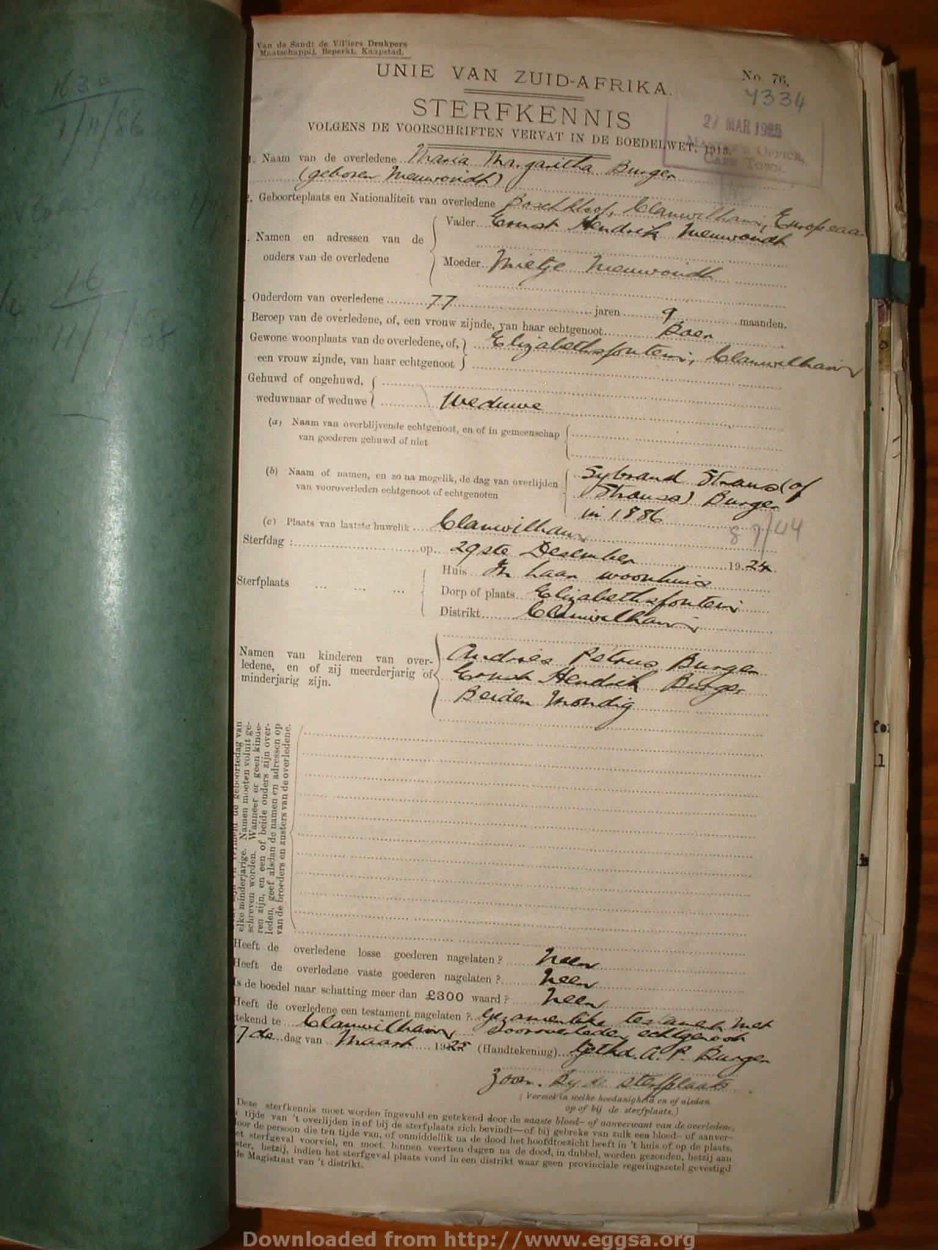 Van de Sandt de Villiers Drukpers
Maatschappij, Beperkt, Kaapstad.
UNIE VAN ZUID-AFRIKA.
No. 76.
4334
STERFKENNIS
27 MAR 1925
VOLGENS DE VOORSCHRIFTEN VERVAT IN DE BOEDELWET, 1913.
1. Naam van de overledene Maria Margaritha Burger
(geboren Nieuwoudt)
Geboorteplaats en Nationaliteit van overledene Boschkloof, Clanwilliam, Europeaan
Vader Ernst Hendrik Nieuwoudt
Namen en adressen van de
ouders van de overledene
Moeder Mietje Nieuwoudt
Ouderdom van overledene 77 jaren 9 maanden.
Beroep van de overledene, of, een vrouw zijnde, van haar echtgenoot Boer
Gewone woonplaats van de overledene, of, Elizabethsfontein, Clanwilliam
een vrouw zijnde, van haar echtgenoot
Gehuwd of ongehuwd,
weduwnaar of weduwe Weduwe
(a) Naam van overblijvende echtgenoot, en of in gemeenschap
van goederen gehuwd of niet
(b) Naam of namen, en zo na mogelik, de dag van overlijden
van vooroverleden echtgenoot of echtgenoten
Sybrand Straus (of
Strauss) Burger
in 1886
(c) Plaats van laatste huwelik Clanwilliam
Sterfdag : op 29ste Desember 1924
Sterfplaats
Huis In haar woonhuis
Dorp of plaats Elizabethsfontein
Distrikt Clanwilliam
Namen van kinderen van over-
ledene, en of zij meerderjarig of
minderjarig zijn.
Andries Petrus Burger
Ernst Hendrik Burger
Beiden Mondig
de geboortedag van
elke minderjarige. Namen moeten voluit ge-
schreven worden. Wanneer er geen kinde-
ren zijn, en een of beide ouders zijn over-
leden, geef alsdan de namen en adressen op
van de broeders en zusters van de overledene.
Heeft de overledene losse goederen nagelaten? Neen
Heeft de overledene vaste goederen nagelaten? Neen
Is de boedel naar schatting meer dan £300 waard? Neen
Heeft de overledene een testament nagelaten? Gezamenlike testament met
vooroverledene echtgenoot
Getekend te Clanwilliam
17de dag van Maart 1925 (Handtekening) Getkd. A. P. Burger
Zoon. By de sterfplaats
(Vermeld in welke hoedanigheid en of aldan
op of bij de sterfplaats.)
Deze sterfkennis moet worden ingevuld en getekend door de naaste bloed- of aanverwant van de overledene,
tijde van 't overlijden in of bij de sterfplaats zich bevindt—of bij gebreke van zulk een bloed- of aanver-
door de persoon die ten tijde van, of onmiddellik na de dood het hoofdtoezicht heeft in 't huis of op de plaats,
het sterfgeval voorviel, en moet, binnen veertien dagen na de dood, in dubbel, worden gezonden, hetzij aan
hetzij, indien het sterfgeval plaats vond in een distrikt waar geen provinciale regeringszetel gevestigd
de Magistraat van 't distrikt.
Downloaded from http://www.eggsa.org